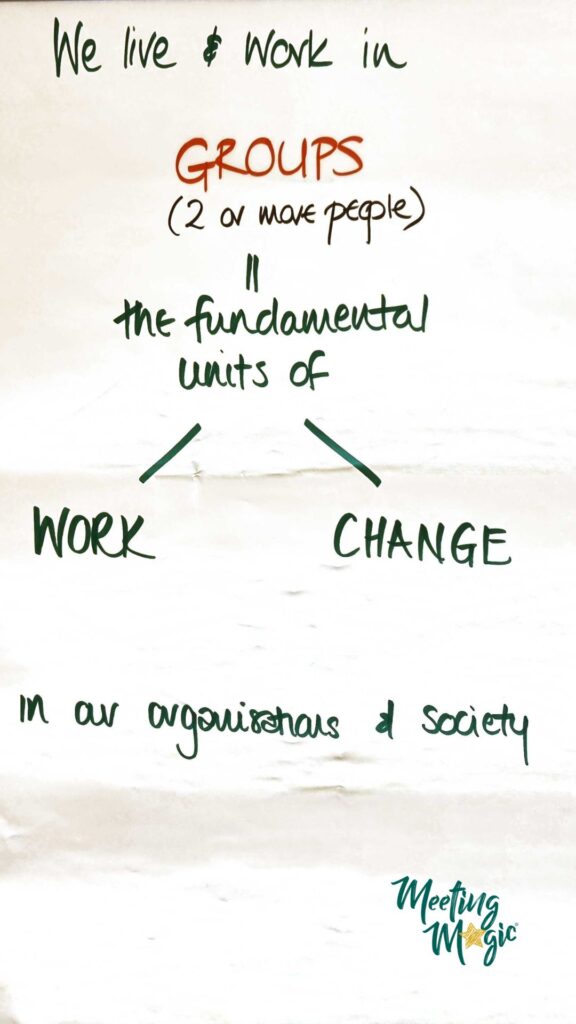 We live & work in
GROUPS
(2 or more people)
=
the fundamental
units of
WORK CHANGE
in our organisations & society
Meeting
Magic®